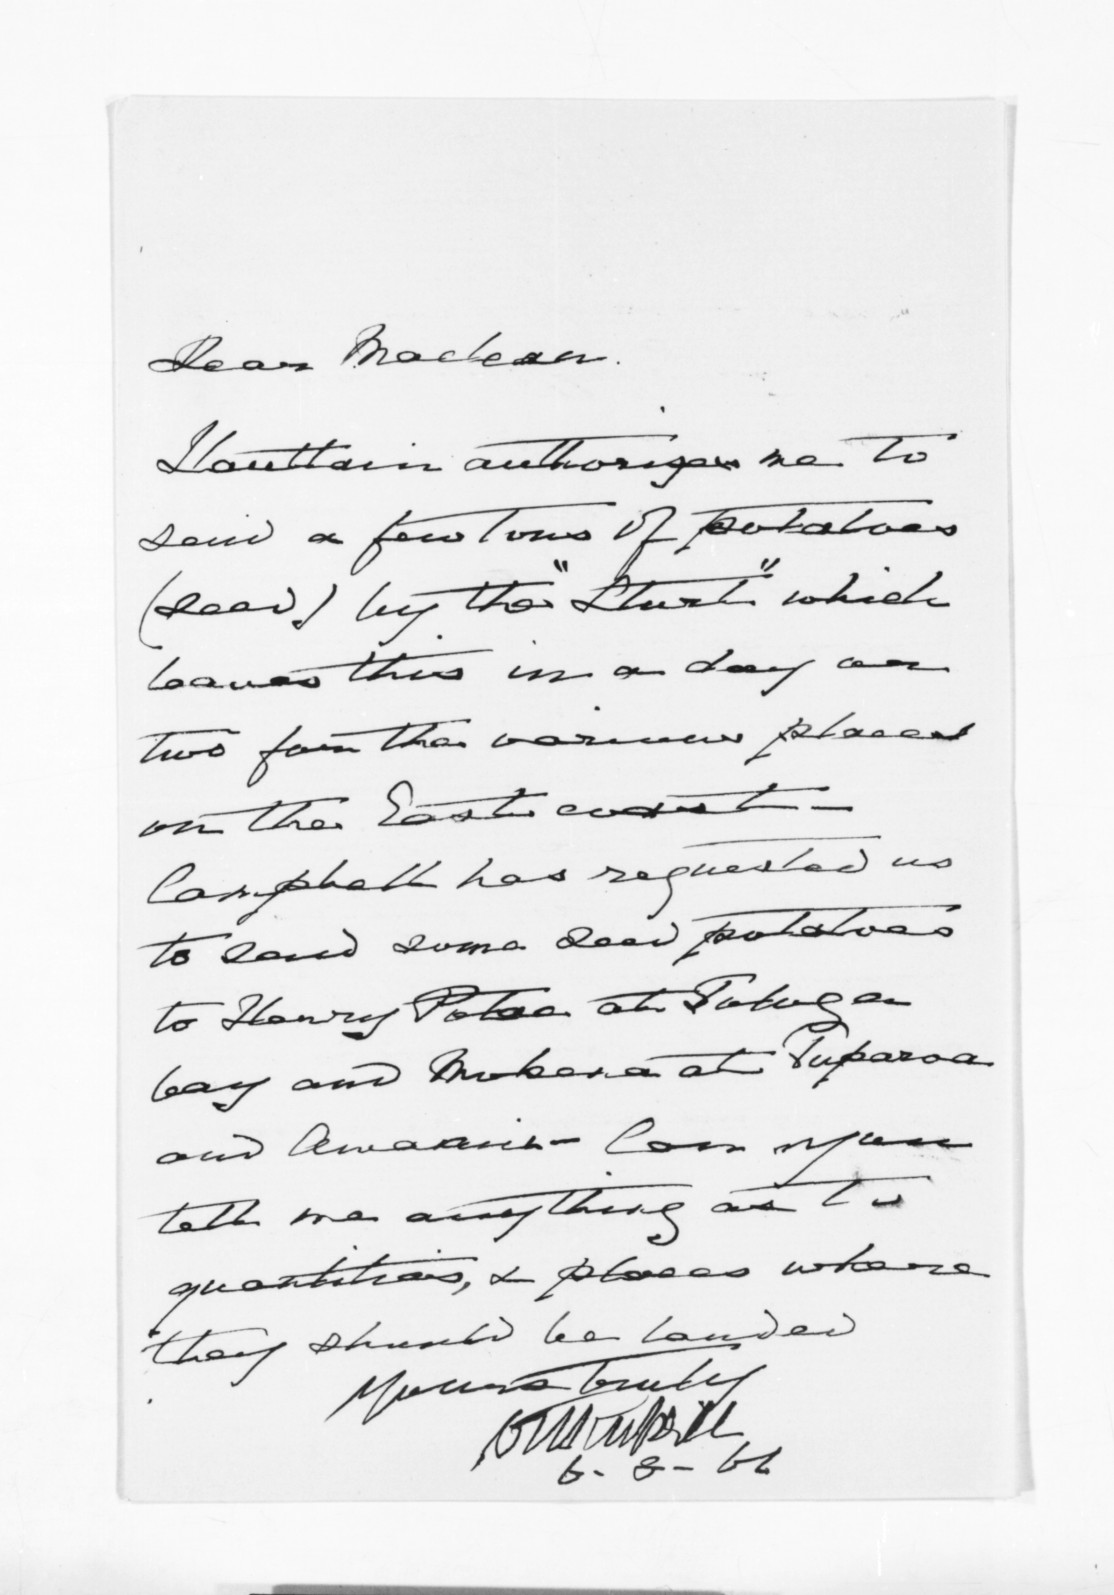 Dear Maclean.
Haultain authorizes me to
send a few tons of potatoes
(seed) by the "Sturt" which
leaves this in a day or
two for the various places
on the East coast -
Campbell has requested us
to send some seed potatoes
to Henry Potae at Tokoga
bay and Mokena at Tuparoa
and Awanui - Can you
tell me anything as to
quantities, & places where
they should be landed
Yours truly
6-8-66